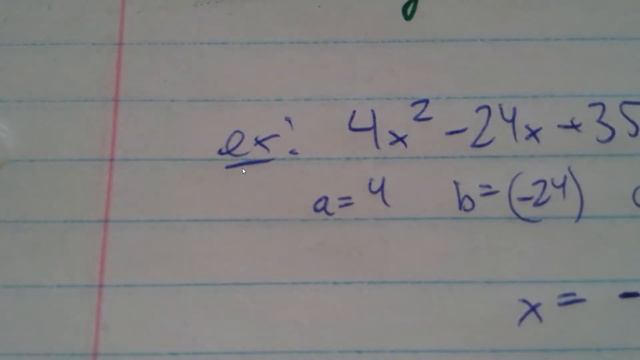 ex: 4x² -24x +35
a=4 b=(-24)
x = -